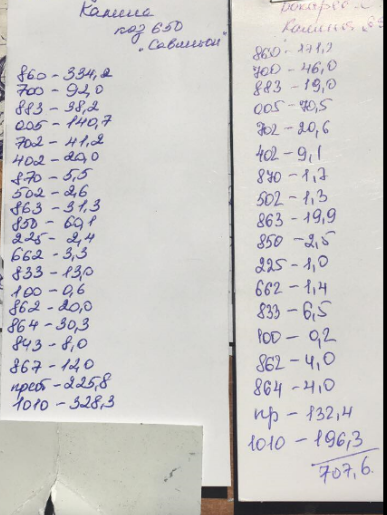 Калина
каз 650
"Савиной"
860-334,2
700-92,0
883-38,2
005-140,7
702-41,2
402-20,0
870-5,5
502-2,6
863-31,3
850-60,1
225-2,4
662-3,3
833-13,0
100-0,6
862-20,0
864-30,3
843-8,0
867-12,0
прот-225,8
1010-328,3
Калина
860-171,2
700-46,0
883-19,0
005-70,5
702-20,6
402-9,1
870-1,7
502-1,3
863-19,9
850-2,5
225-1,0
662-1,4
833-6,5
100-0,2
862-4,0
864-4,0
пр-132,4
1010-196,3
707,6.